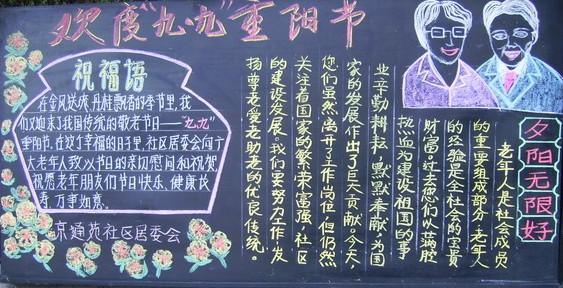 欢度“九·九”重阳节
祝福语
在金风送爽,丹桂飘香的季节里,我
们又迎来了我国传统的敬老节日——“九九”
重阳节,在这幸福的日子里,社区居委会向广
大老年人致以节日的亲切慰问和祝贺,
祝愿老年朋友们节日快乐、健康长
寿、万事如意。
京通苑社区居委会
夕阳无限好
老年人是社会成员
的重要组成部分,老年人
的经验是全社会的宝贵
财富。过去他们以满腔
热血为建设祖国的事
业辛勤耕耘,默默奉献,为国
家的发展作出了巨大贡献。今天,
您们虽然离开了工作岗位,但仍然
关注着国家的繁荣富强,社区
的建设发展。我们要努力工作,发
扬尊老爱老助老的优良传统。